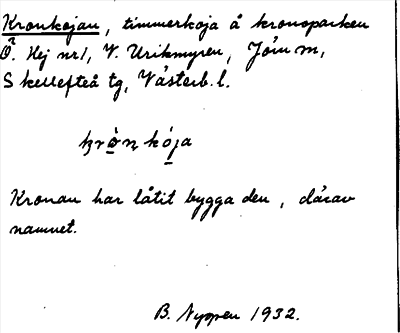 Kronkojan, timmerkoja å kronoparken
Ö. Hej nr1, V. Urikmyren, Jörn m,
Skellefteå tg, Västerb. l.
kròn kója
Kronan har låtit bygga den, därav
namnet.
B. Nyppen 1932.